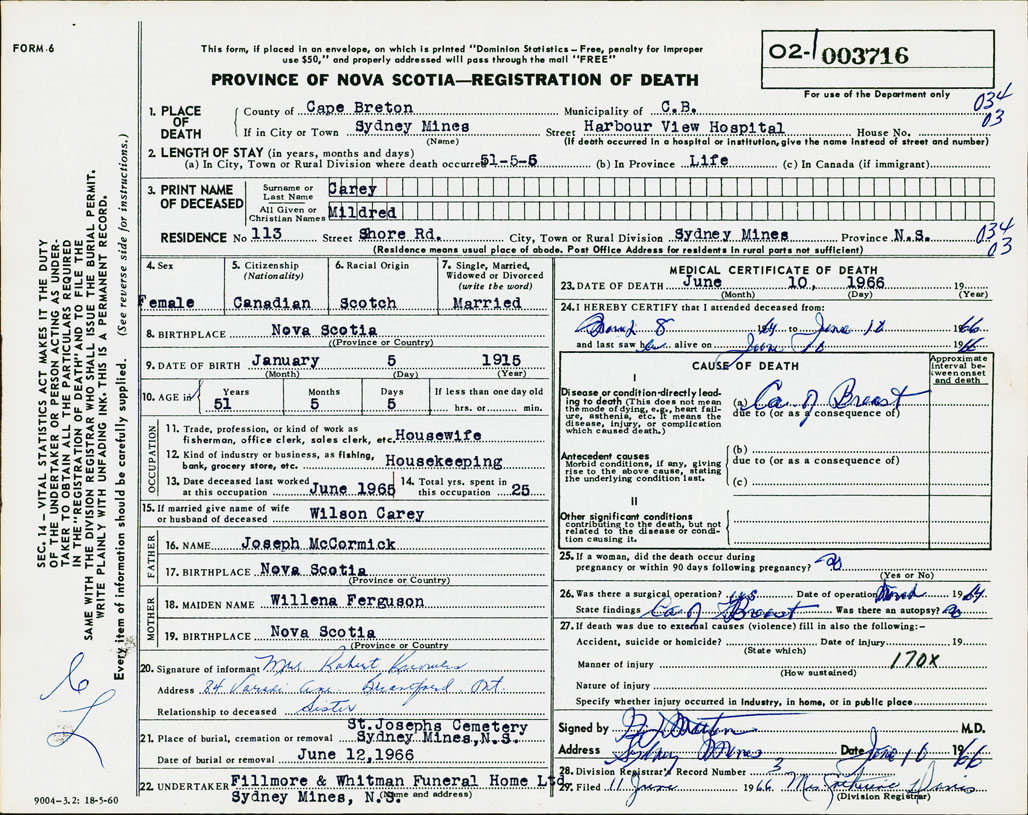 FORM 6
This form, if placed in an envelope, on which is printed "Dominion Statistics – Free, penalty for improper
use $50," and properly addressed will pass through the mail "FREE"
PROVINCE OF NOVA SCOTIA—REGISTRATION OF DEATH
02- 003716
For use of the Department only
034
03
1. PLACE OF DEATH
County of Cape Breton Municipality of C.B.
If in City or Town Sydney Mines Street Harbour View Hospital House No.
(Name) (If death occurred in a hospital or institution, give the name instead of street and number)
2. LENGTH OF STAY (in years, months and days)
(a) In City, Town or Rural Division where death occurred 51-5-5 (b) In Province Life (c) In Canada (if immigrant)
3. PRINT NAME OF DECEASED
Surname or Last Name Carey
All Given or Christian Names Mildred
RESIDENCE No 113 Street Shore Rd. City, Town or Rural Division Sydney Mines Province N.S.
034
03
(Residence means usual place of abode. Post Office Address for residents in rural parts not sufficient)
4. Sex
Female
5. Citizenship
(Nationality)
Canadian
6. Racial Origin
Scotch
7. Single, Married,
Widowed or Divorced
(write the word)
Married
8. BIRTHPLACE Nova Scotia
(Province or Country)
9. DATE OF BIRTH January 5 1915
(Month) (Day) (Year)
10. AGE in Years Months Days If less than one day
51 5 5 hrs. or min.
OCCUPATION
11. Trade, profession, or kind of work as
fisherman, office clerk, sales clerk, etc. Housewife
12. Kind of industry or business, as fishing,
bank, grocery store, etc. Housekeeping
13. Date deceased last worked
at this occupation June 1965
14. Total yrs. spent in
this occupation 25
15. If married give name of wife
or husband of deceased Wilson Carey
FATHER
16. NAME Joseph McCormick
17. BIRTHPLACE Nova Scotia
(Province or Country)
MOTHER
18. MAIDEN NAME Willena Ferguson
19. BIRTHPLACE Nova Scotia
(Province or Country
20. Signature of informant Mrs Robert
Address 84 Ave Brantford Ont.
Relationship to deceased Sister
21. Place of burial, cremation or removal St.Josephs Cemetery
Sydney Mines,N.S.
Date of burial or removal June 12,1966
22. UNDERTAKER Fillmore & Whitman Funeral Home Ltd
Sydney Mines, N.S.
(Name and address)
MEDICAL CERTIFICATE OF DEATH
23. DATE OF DEATH June 10, 1966 19
(Month) (Day) (Year)
24. I HEREBY CERTIFY that I attended deceased from:
8 1964 to June 10 1966
and last saw her alive on June 10 1966
CAUSE OF DEATH
Approximate
interval be-
tween onset
and death
I
Disease or condition directly lead-
ing to death (This does not mean
the mode of dying, e.g., heart fail-
ure, asthenia, etc. It means the
disease, injury, or complication
which caused death.)
(a) Ca of Breast
due to (or as a consequence of)
Antecedent causes
Morbid conditions, if any, giving
rise to the above cause, stating
the underlying condition last.
(b)
due to (or as a consequence of)
(c)
II
Other significant conditions
contributing to the death, but not
related to the disease or condi-
tion causing it.
25. If a woman, did the death occur during
pregnancy or within 90 days following pregnancy? no
(Yes or No)
26. Was there a surgical operation? yes Date of operation March 1964
State findings Ca of Breast Was there an autopsy? no
27. If death was due to external causes (violence) fill in also the following:-
Accident, suicide or homicide? Date of Injury 19
(State which)
Manner of injury 170X
(How sustained)
Nature of injury
Specify whether injury occurred in industry, in home, or in public place
Signed by M.D.
Address Sydney Mines Date June 10 1966
28. Division Registrar's Record Number 3
29. Filed 11 June 1966 Mrs Davis
(Division Registrar)
SEC. 14 – VITAL STATISTICS ACT MAKES IT THE DUTY
OF THE UNDERTAKER OR PERSON ACTING AS UNDER-
TAKER TO OBTAIN ALL THE PARTICULARS REQUIRED
IN THE "REGISTRATION OF DEATH" AND TO FILE THE
SAME WITH THE DIVISION REGISTRAR WHO SHALL ISSUE THE BURIAL PERMIT.
WRITE PLAINLY WITH UNFADING INK. THIS IS A PERMANENT RECORD.
Every item of information should be carefully supplied. (See reverse side for instructions.)
9004–3.2: 18-5-60